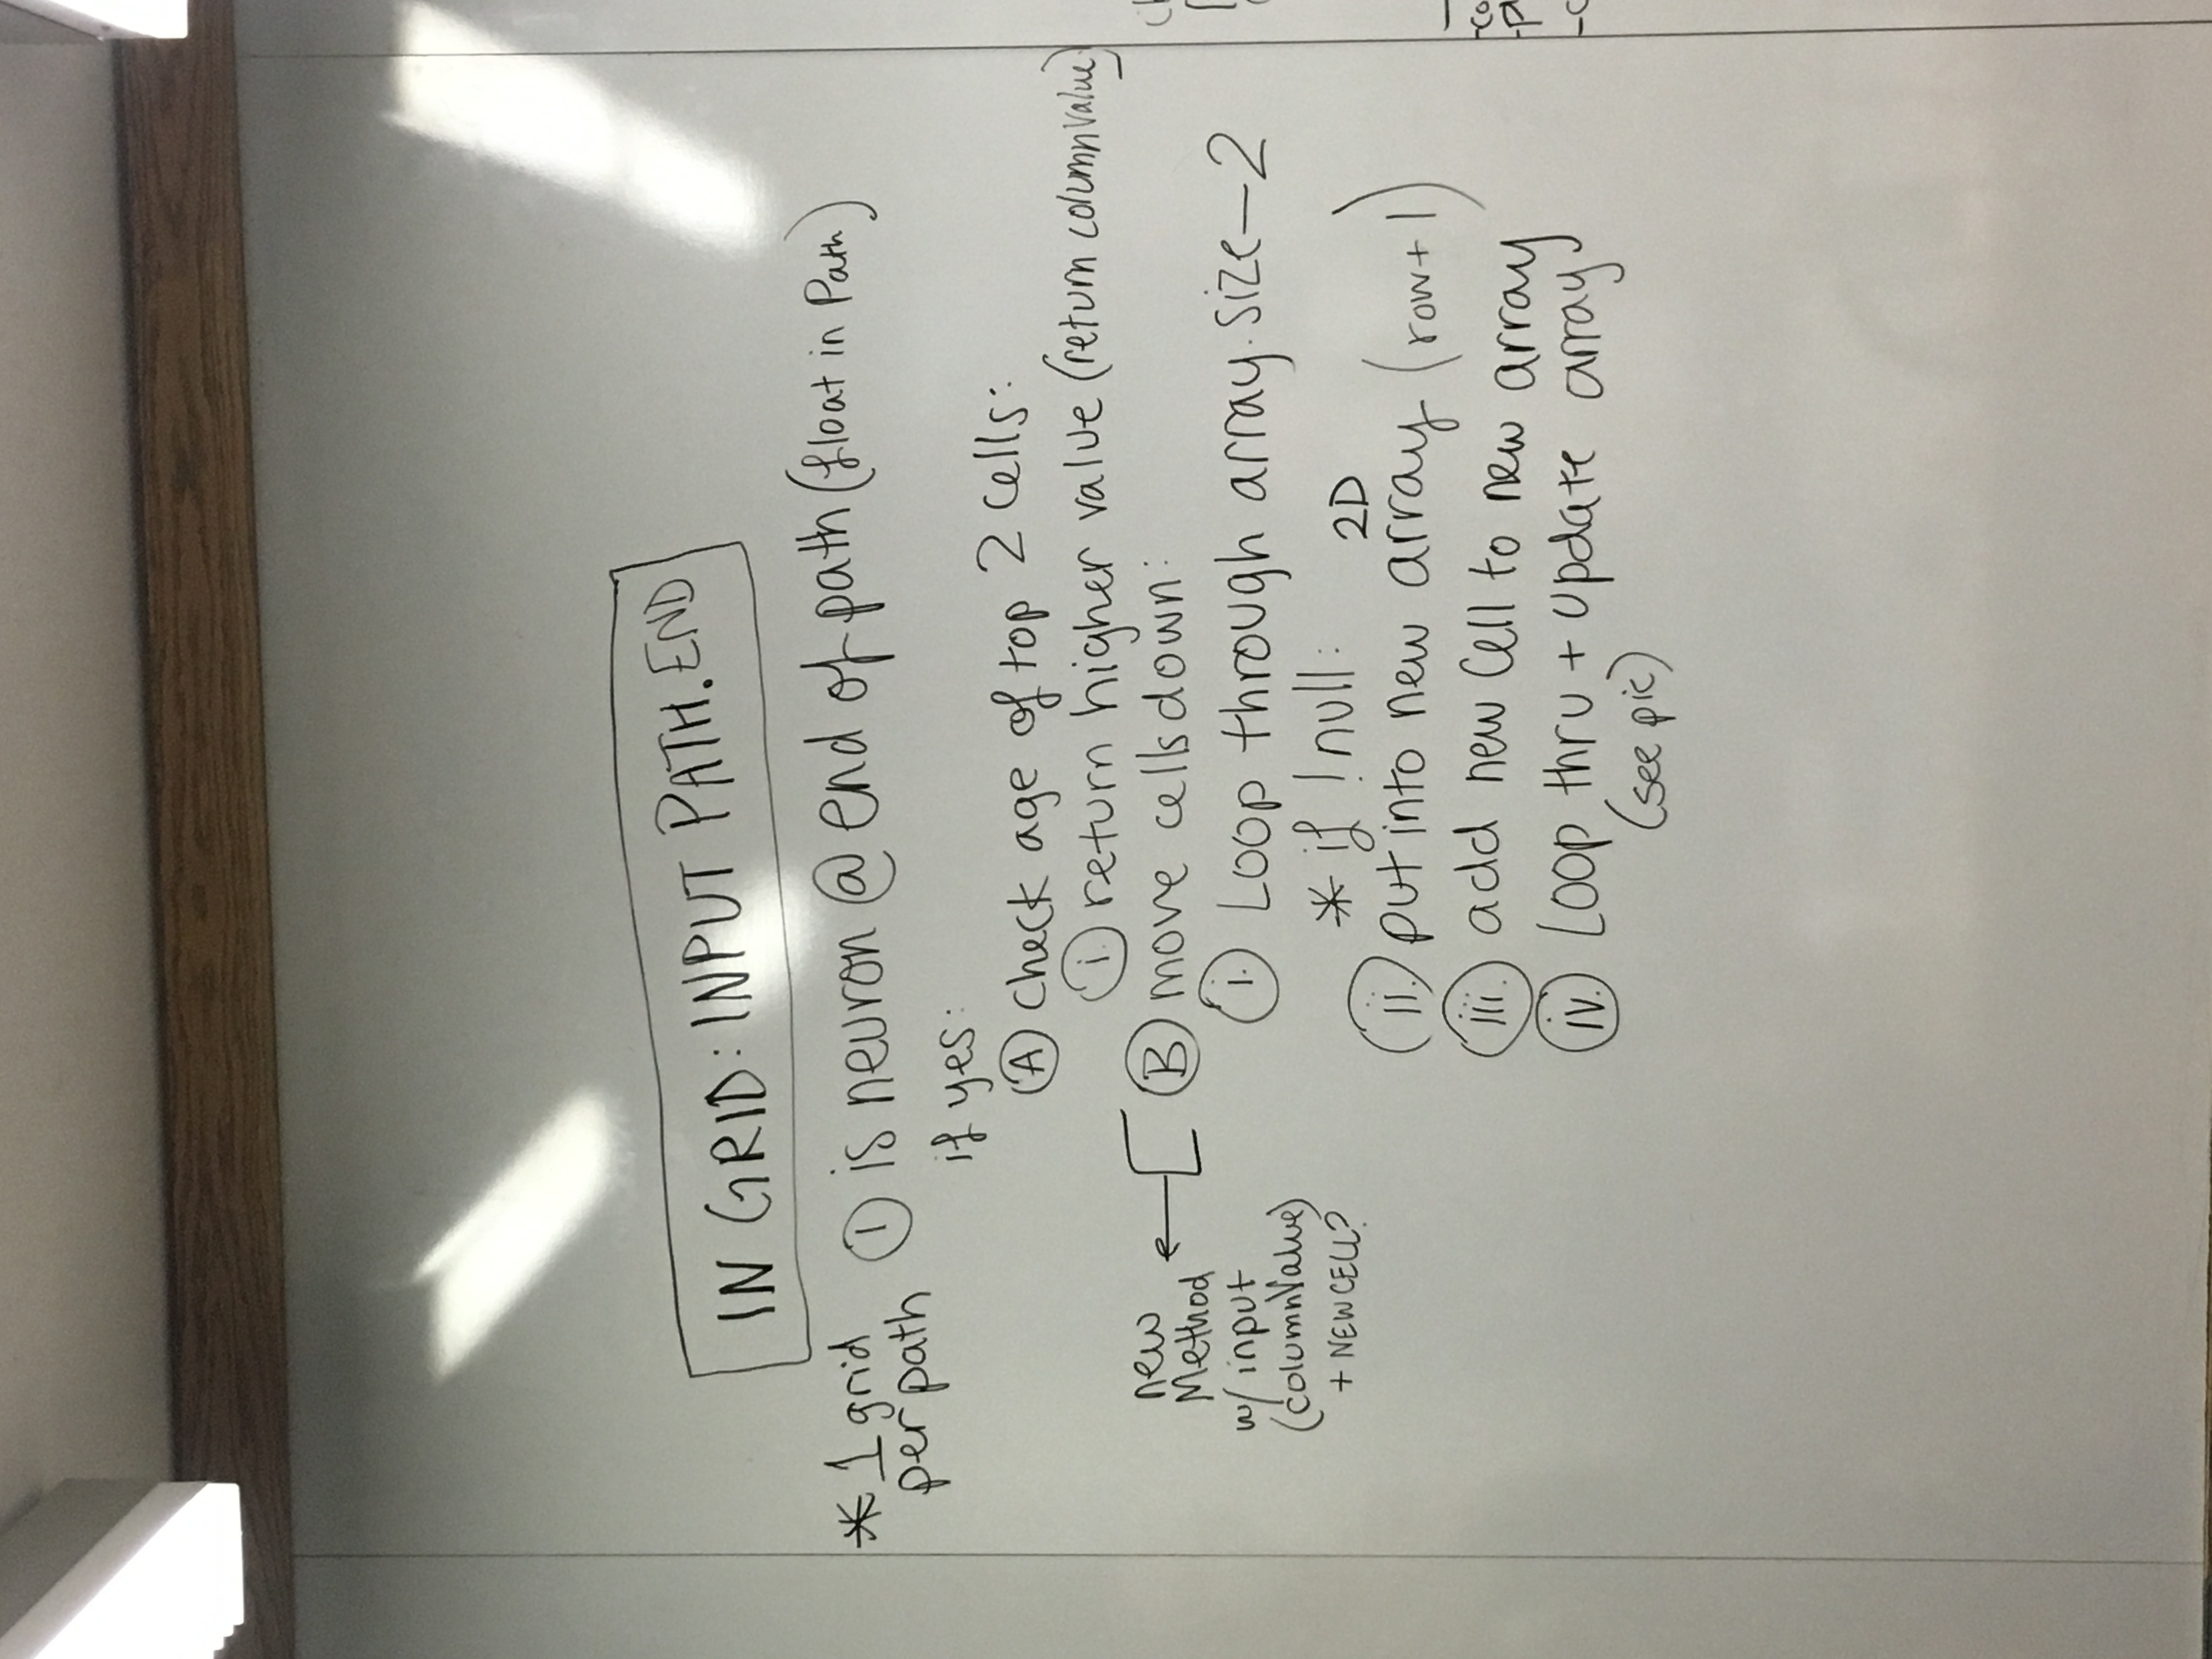 IN GRID: INPUT PATH.END
* 1 grid
per path
① is neuron @ end of path (float in Path)
if yes:
Ⓐ check age of top 2 cells:
i. return higher value (return columnValue)
Ⓑ move cells down:
new
Method
w/ input
(columnValue)
+ NEW CELL?
i. Loop through array.size-2
* if !null:
2D
ii. put into new array (row+1)
iii. add new Cell to new array
iv. Loop thru + update array
(see pic)